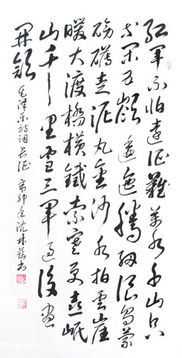 红军不怕远征难万水千山只
等闲五岭逶迤腾细浪乌蒙
磅礴走泥丸金沙水拍云崖
暖大渡桥横铁索寒更喜岷
山千里雪三军过后尽
开颜
毛泽东诗词长征 辛卯年沈林书